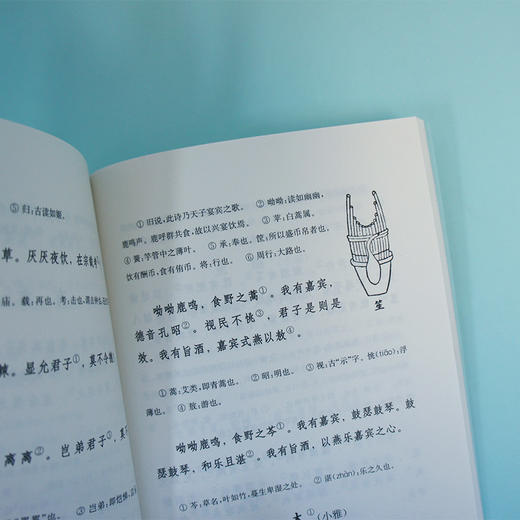 ⑤ 归:古读如鬼。
草。厌厌夜饮,在宗载考
庙。载:再也。考:击也
棘。显允君子②,莫不令
离离②。岂弟君子③,莫
③ 岂弟:即恺悌
① 旧说,此诗乃天子宴宾之歌。 ② 呦呦:读如幽幽,
鹿鸣声。鹿呼群共食,故以兴宴饮焉。 ③ 苹:白蒿属。
④ 簧:竽管中之薄叶。 ⑤ 承:奉也。筐:所以盛币帛者也。
饮有酬币,食有侑币。将:行也。 ⑥ 周行:大路也。
笙
呦呦鹿鸣,食野之蒿①。我有嘉宾,
德音孔昭②。视民不恌③,君子是则是
效。我有旨酒,嘉宾式燕以敖④。
① 蒿:艾类,即青蒿也。 ② 昭:明也。 ③ 视:古“示”字。恌(tiāo):浮
薄也。 ④ 敖:游也。
呦呦鹿鸣,食野之芩①。我有嘉宾,鼓瑟鼓琴。鼓
瑟鼓琴,和乐且湛②。我有旨酒,以燕乐嘉宾之心。
① 芩:草名,叶如竹,蔓生卑湿之处。 ② 湛(zhàn):乐之久也。
①(小雅)